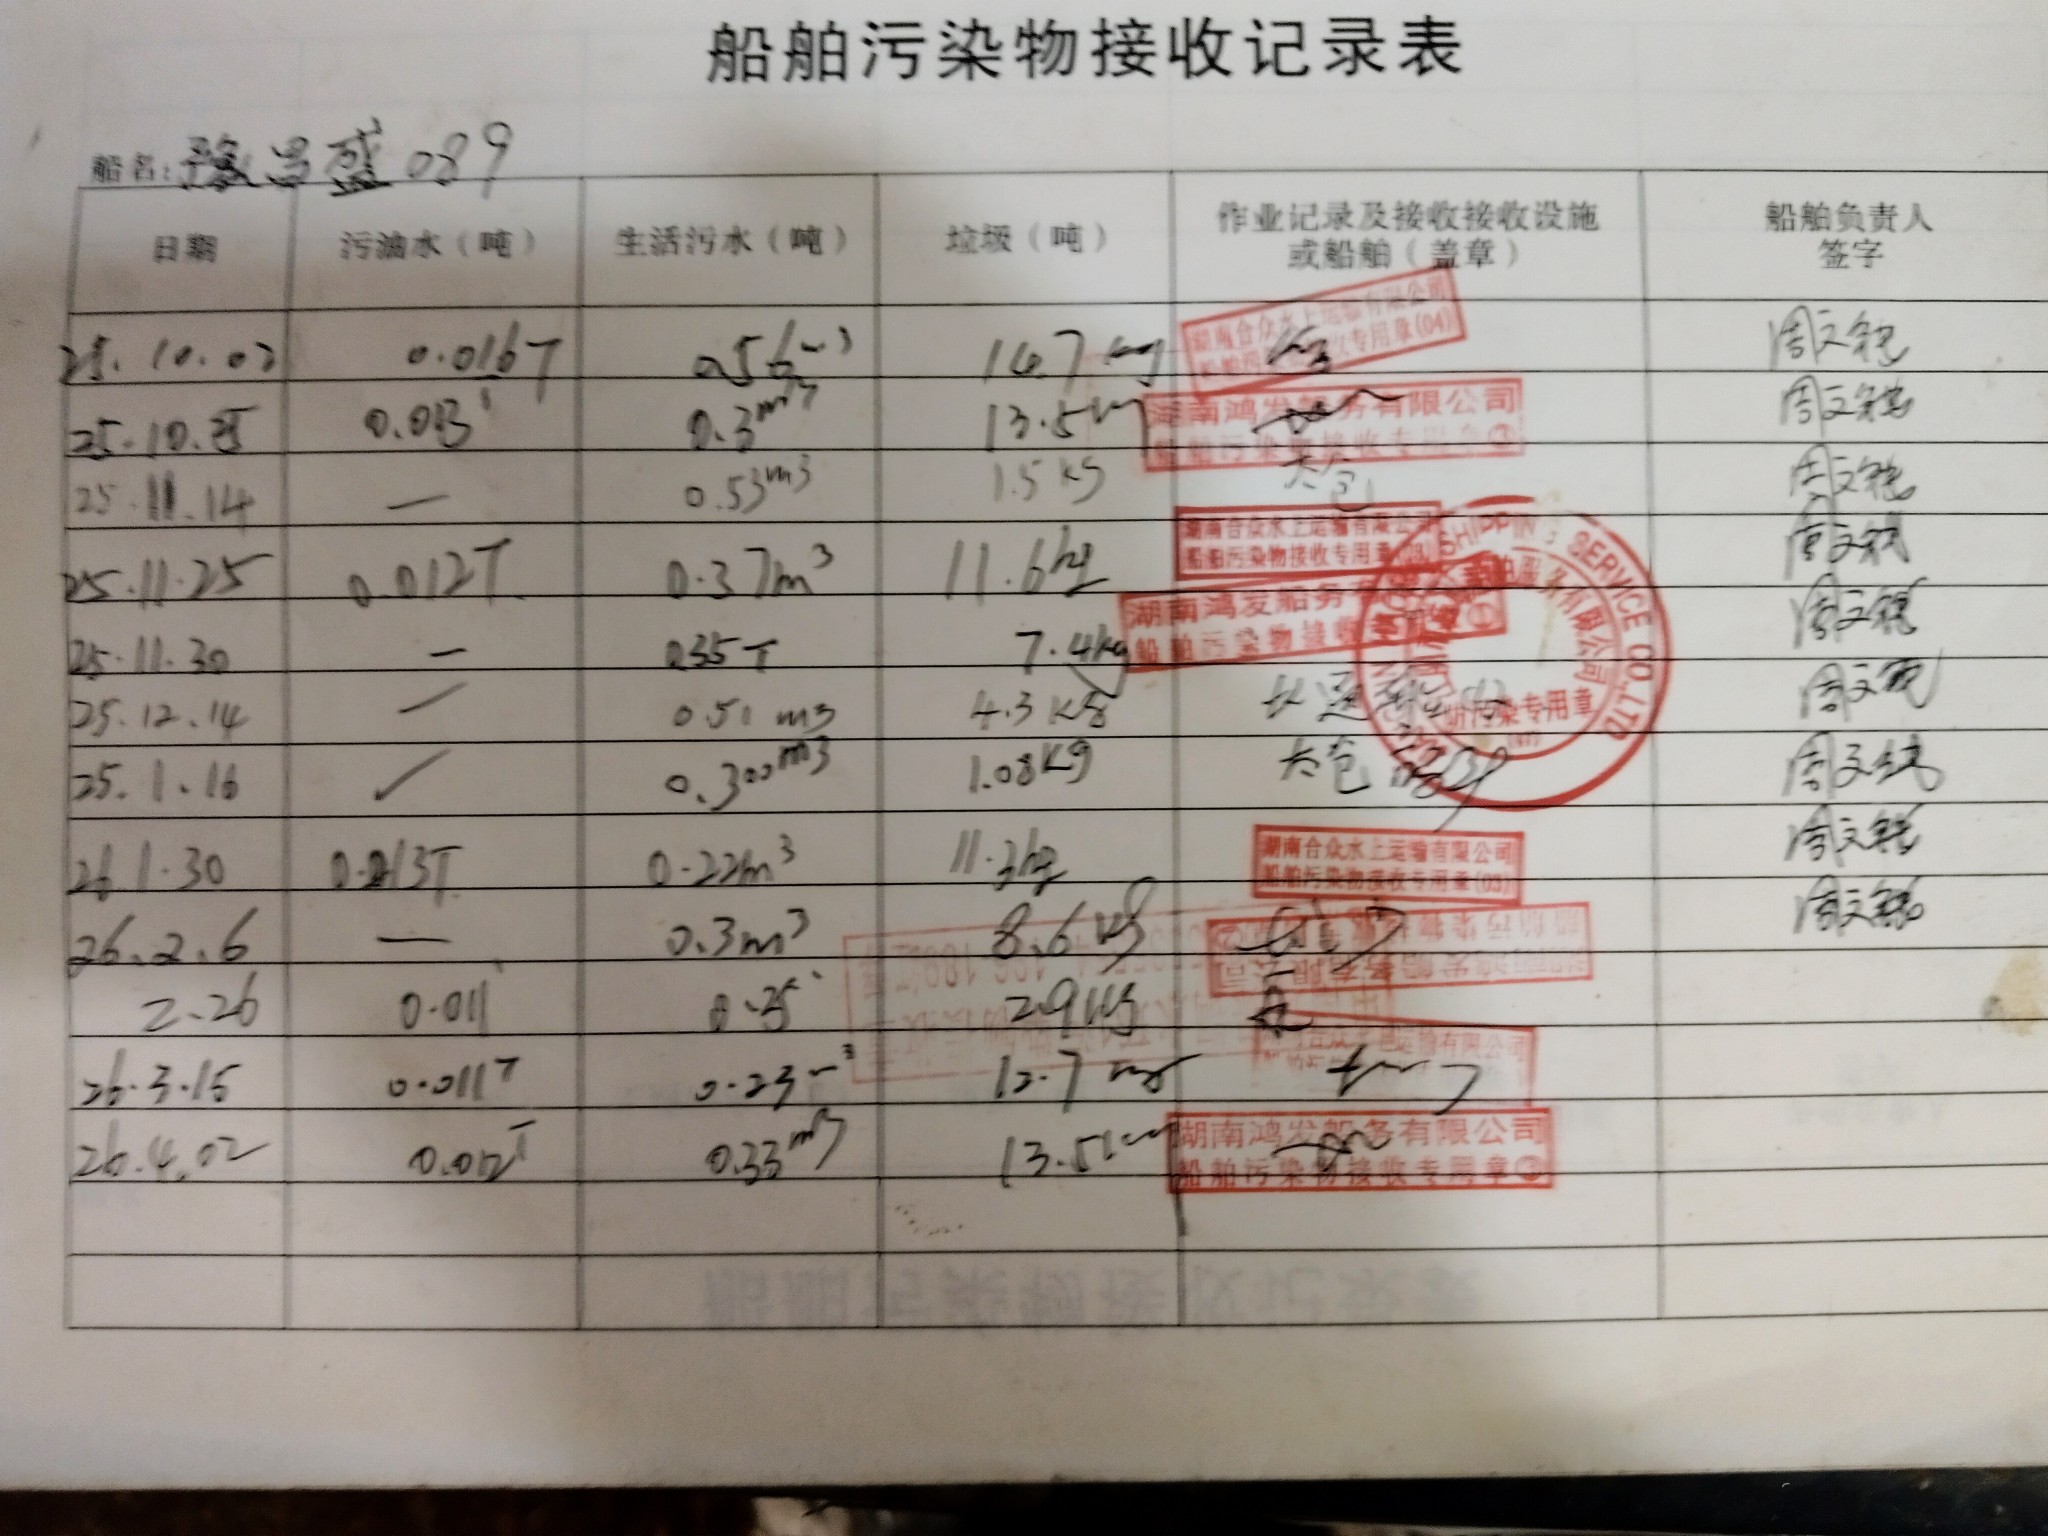 船舶污染物接收记录表
船名: 豫昌盛 089
日期 污油水（吨） 生活污水（吨） 垃圾（吨） 作业记录及接收接收设施或船舶（盖章） 船舶负责人签字
25.10.02 0.016T 0.56m³ 14.7kg 湖南合众水上运输有限公司 船舶污染物接收专用章(04)
25.10.25 0.013 0.3m³ 13.5kg 湖南鸿发船务有限公司 船舶污染物接收专用章③
25.11.14 — 0.53m3 1.5KG 太仓
25.11.25 0.012T 0.37m³ 11.6kg 湖南合众水上运输有限公司 船舶污染物接收专用章(03)
25.11.30 — 0.35T 7.4kg 湖南鸿发船务有限公司 船舶污染物接收专用章①
25.12.14 — 0.51m3 4.3KG SHIPPING SERVICE CO.,LTD 船舶服务有限公司 防污染专用章
25.1.16 0.300m3 1.08KG 太仓
26.1.30 0.013T 0.22m³ 11.3kg 湖南合众水上运输有限公司 船舶污染物接收专用章(03)
26.2.6 — 0.3m³ 8.6KG
2.26 0.011 0.25 2.9KG
26.3.15 0.011T 0.23m³ 12.7kg
26.4.02 0.012T 0.33m³ 13.5kg 湖南鸿发船务有限公司 船舶污染物接收专用章③